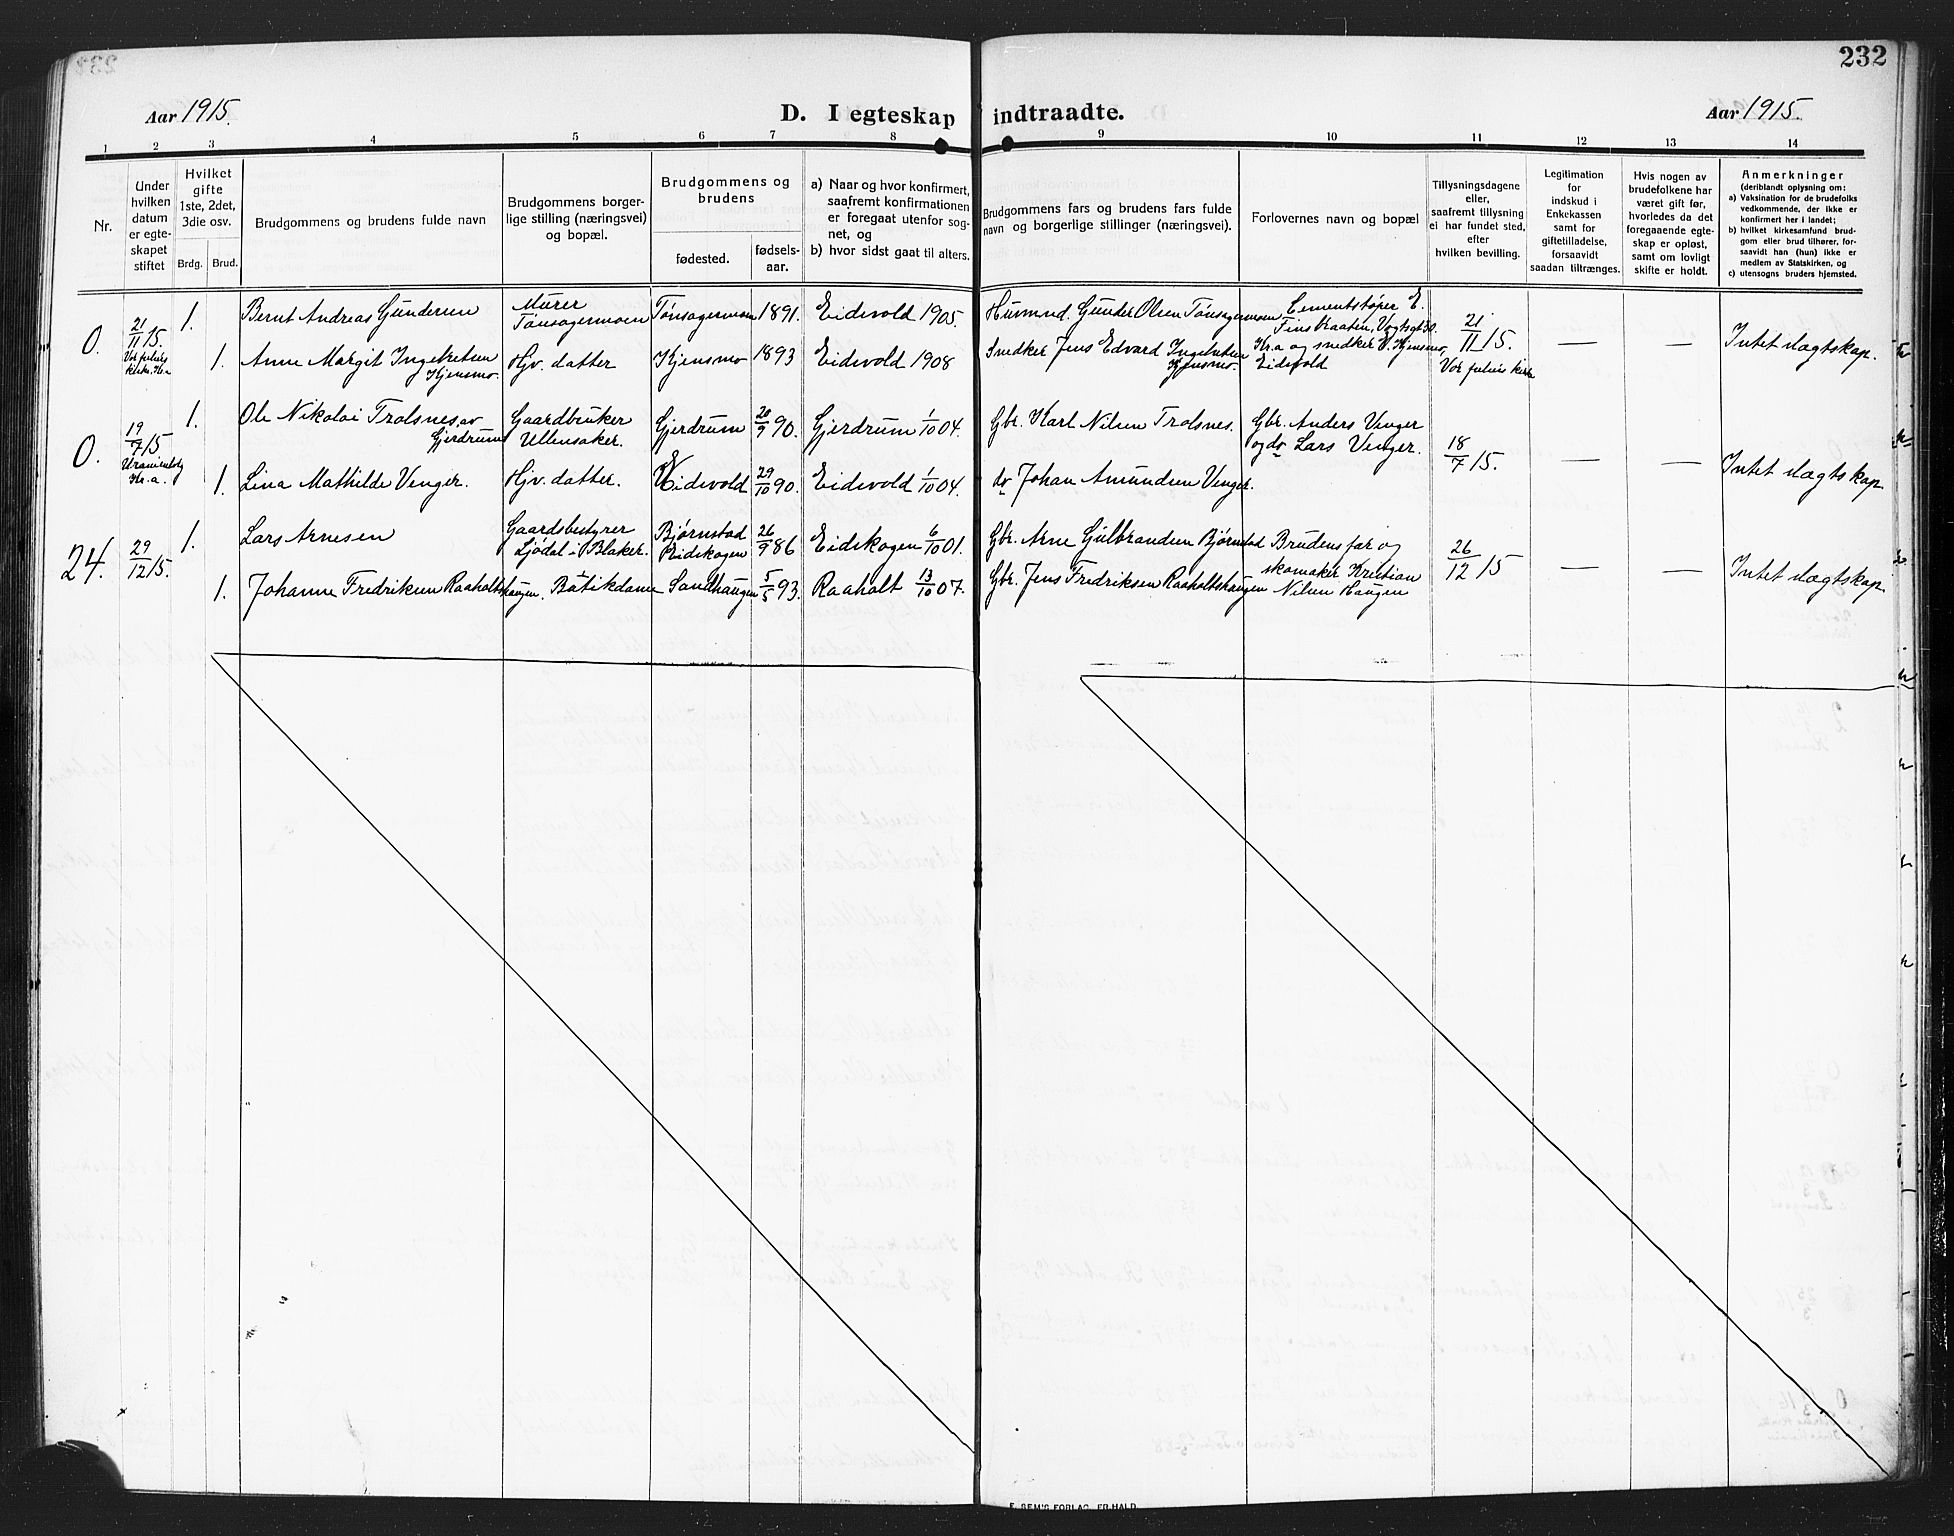 232
Aar 1915.
D. I egteskap indtraadte.
Aar 1915.
1 2 3 4 5 6 7 8 9 10 11 12 13 14
Nr.
Under
hvilken
datum
er egte-
skapet
stiftet
Hvilket
gifte
1ste, 2det,
3die osv.
Brdg. Brud.
Brudgommens og brudens fulde navn
Brudgommens borger-
lige stilling (næringsvei)
og bopæl.
Brudgommens og
brudens
fødested.
fødsels-
aar.
a) Naar og hvor konfirmert,
saafremt konfirmationen
er foregaat utenfor sog-
net, og
b) hvor sidst gaat til alters.
Brudgommens fars og brudens fars fulde
navn og borgerlige stillinger (næringsvei).
Forlovernes navn og bopæl
Tillysningsdagene
eller,
saafremt tillysning
ei har fundet sted,
efter
hvilken bevilling.
Legitimation
for
indskud i
Enkekassen
samt for
giftetilladelse,
forsaavidt
saadan tiltrænges.
Hvis nogen av
brudefolkene har
været gift før,
hvorledes da det
foregaaende egte-
skap er opløst,
samt om lovligt
skifte er holdt.
Anmerkninger
(deriblandt oplysning om:
a) Vaksination for de brudefolks
vedkommende, der ikke er
konfirmert her i landet;
b) hvilket kirkesamfund brud-
gom eller brud tilhører, for-
saavidt han (hun) ikke er
medlem av Statskirken, og
c) utensogns bruders hjemsted.
0.
21/11 15.
Vor frelsers
kirke. Kr.a
1.
Bernt Andreas Gundersen
Murer
Tønsagermoen
Tønsagermoen
1891.
Eidsvold 1905.
Husmnd. Gunder Olsen Tønsagermoen
Cementstøper E.
Finsbraaten, Vogtsgt 30.
Kr.a og snedker O. Kjensmo,
Eidsvold
21/11 15.
Vor frelsers kirke
— —
Intet slægtskap.
1.
Anne Margit Ingebretsen
Kjensmo.
Hjv. datter
Kjensmo
1893
Eidsvold 1908
Snedker Jens Edvard Ingebretsen
Kjensmo.
0.
19/7 15
Uranienborg
Kr.a.
1.
Ole Nikolai Trolsnes, av
Gjerdrum
Gaardbruker
Ullensaker.
Gjerdrum
20/9 90.
Gjerdrum 1/10 04.
Gbr. Karl Nilsen Trolsnes.
Gbr. Anders Venger
og do Lars Venger.
18/7 15.
— —
Intet slægtskap.
1.
Lina Mathilde Venger.
Hjv. datter.
Eidsvold
29/10 90.
Eidsvold 1/10 04.
do Johan Amundsen Venger.
24.
29/12 15.
1.
Lars Arnesen
Gaardsbestyrer
Ljødal i Blaker.
Bjørnstad
Eidskogen
26/9 86
Eidskogen 6/10 01.
Gbr. Arne Gulbrandsen Bjørnstad
Brudens far og
skomaker Kristian
Nilsen Haugen
26/12 15
— —
Intet slægtskap.
1.
Johanne Fredriksen Raaholtshaugen.
Butikdame
Sandhaugen
5/5 93.
Raaholt 13/10 07.
Gbr. Jens Fredriksen Raaholtshaugen
E. SEM'S FORLAG, FR.HALD